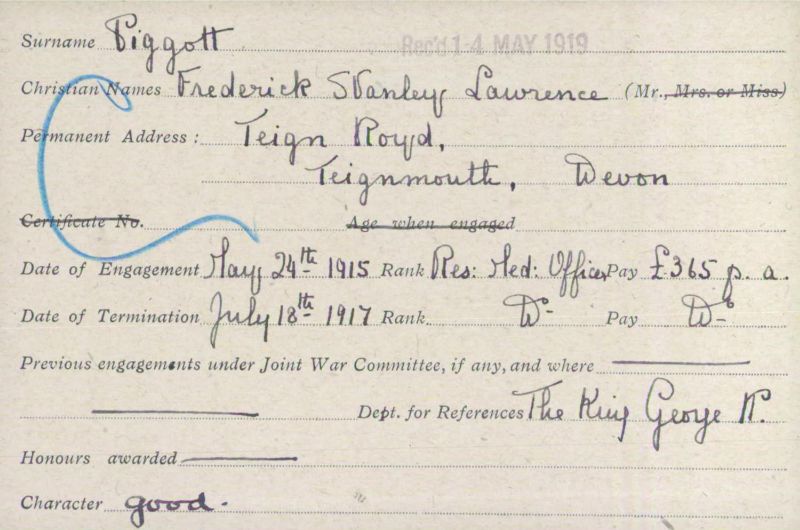 Surname Piggott Rec'd 14 MAY 1919
Christian Names Frederick Stanley Lawrence (Mr., Mrs. or Miss)
Permanent Address: Teign Royd,
Teignmouth, Devon
Certificate No. Age when engaged
Date of Engagement May 24th 1915 Rank Res: Med: Officer Pay £365 p. a.
Date of Termination July 18th 1917 Rank Do- Pay Do-
Previous engagements under Joint War Committee, if any, and where
Dept. for References The King George H.
Honours awarded
Character good.